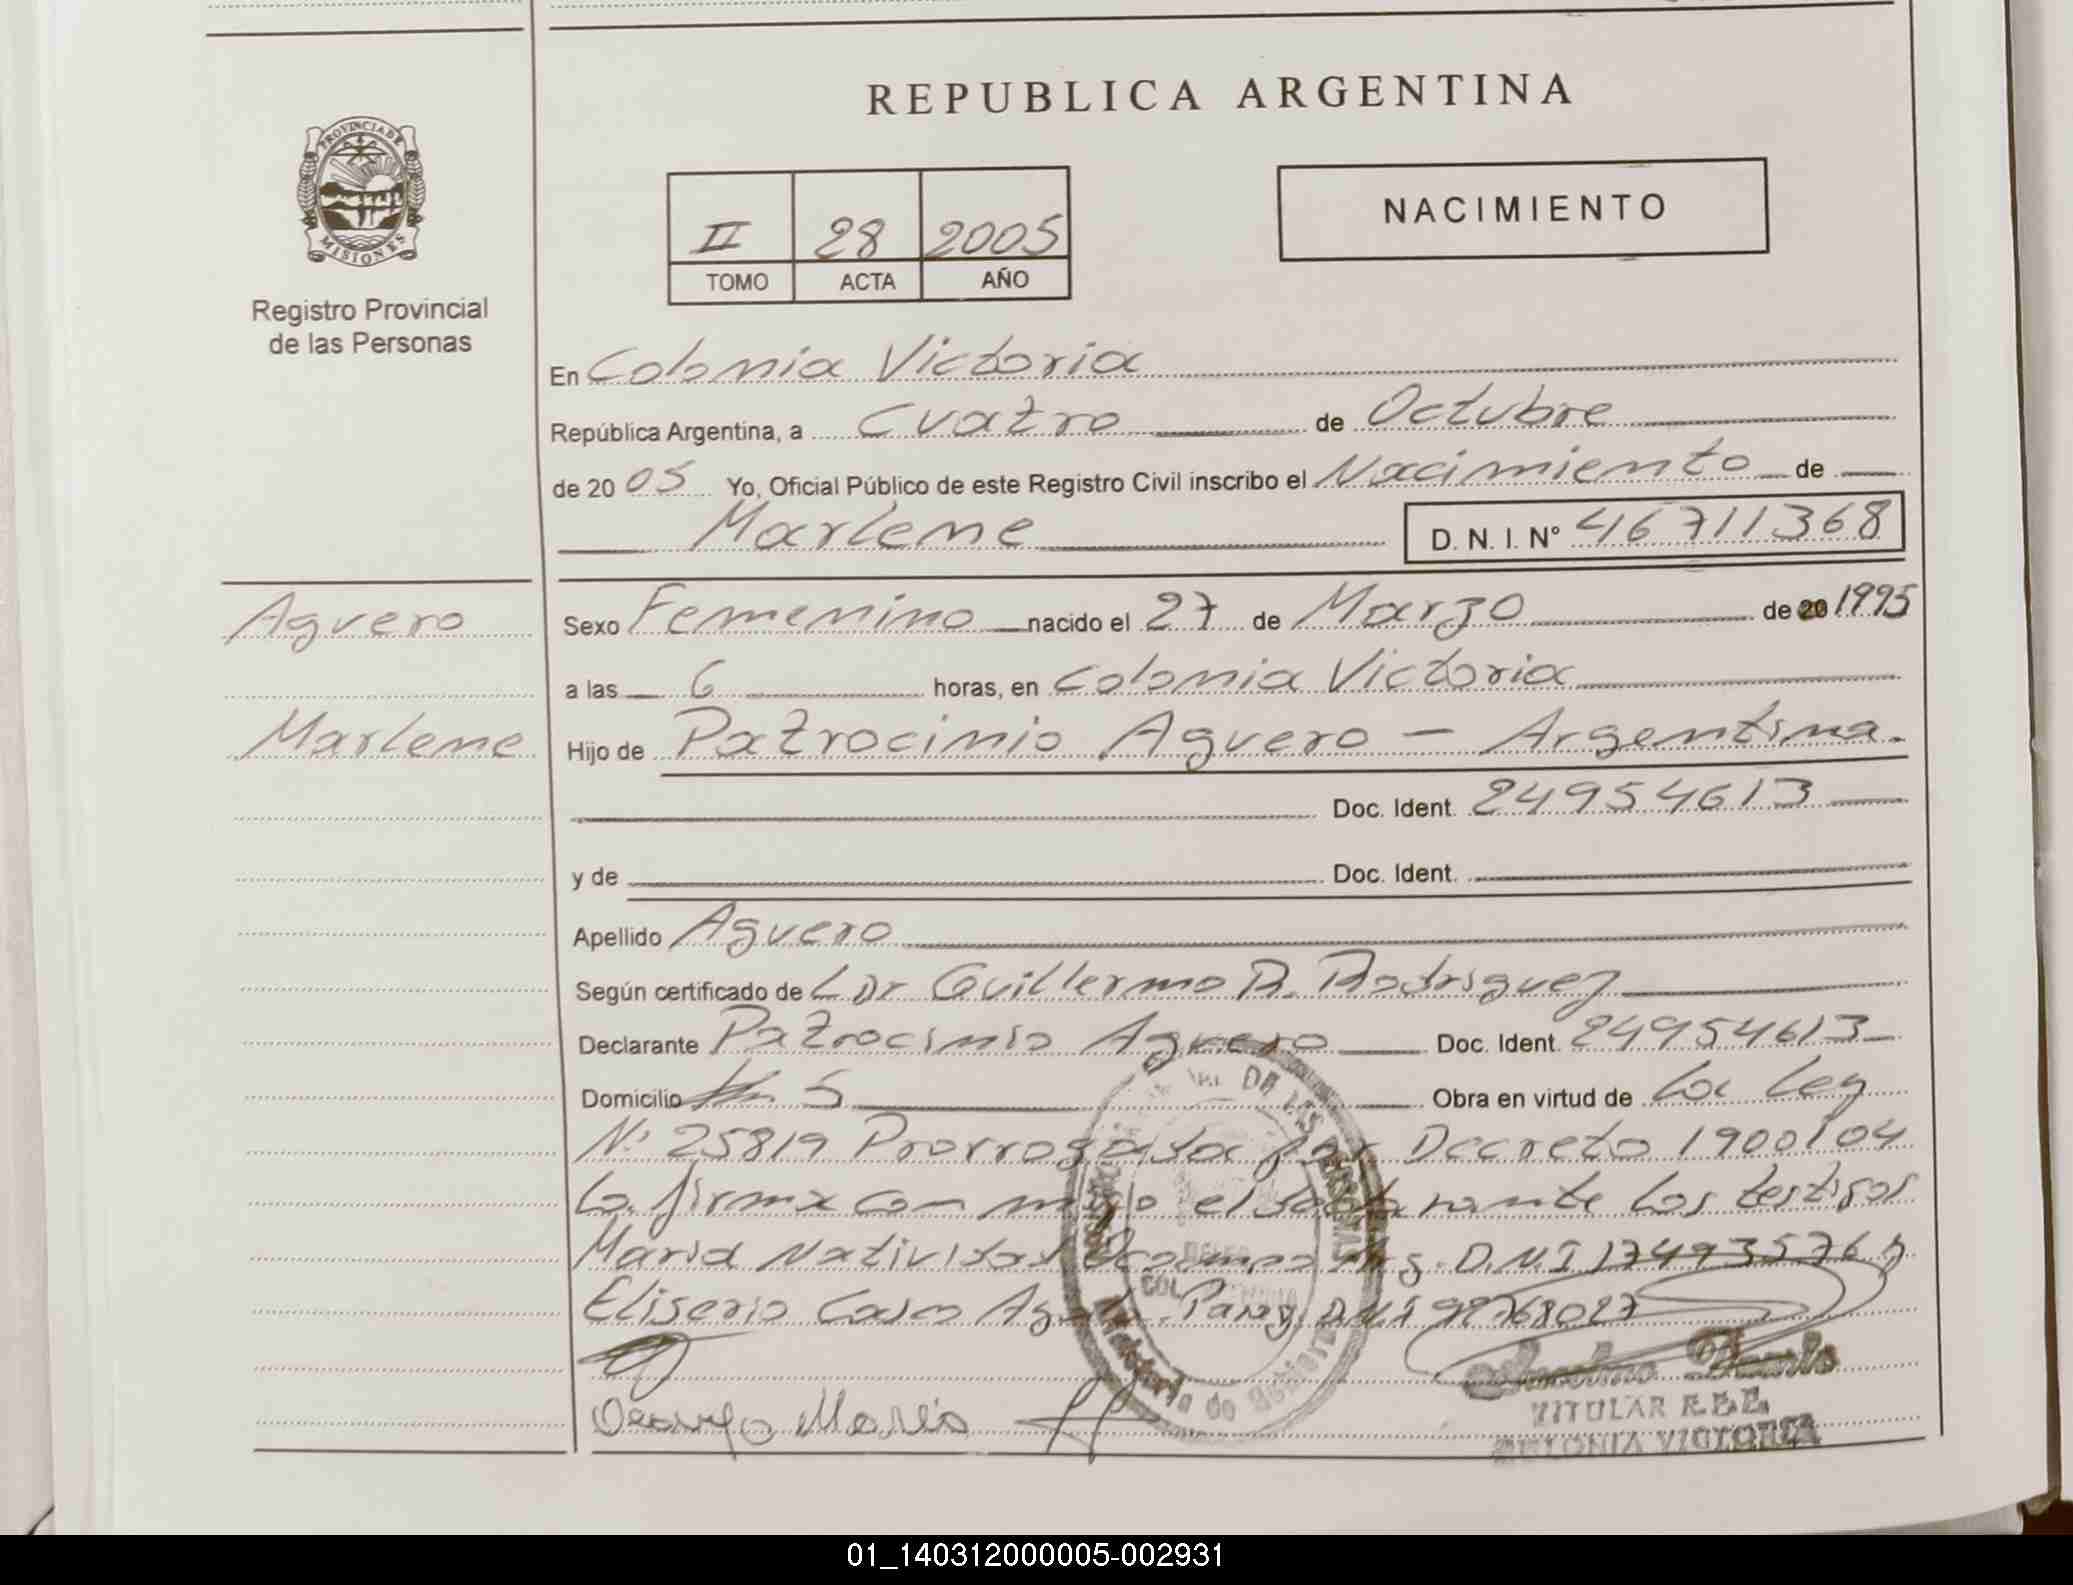 REPUBLICA ARGENTINA
PROVINCIA DE
MISIONES
Registro Provincial
de las Personas
II 28 2005
TOMO ACTA AÑO
NACIMIENTO
En Colonia Victoria
República Argentina, a Cuatro de Octubre
de 20 05 Yo, Oficial Público de este Registro Civil inscribo el Nacimiento de
Marlene D. N. I. Nº 46711368
Aguero
Marlene
Sexo Femenino nacido el 27 de Marzo de 20 1995
a las 6 horas, en Colonia Victoria
Hijo de Patrocinio Aguero - Argentina.
Doc. Ident. 24954613
y de Doc. Ident.
Apellido Aguero
Según certificado de Dr Guillermo R. Rodriguez
Declarante Patrocinio Aguero Doc. Ident. 24954613
Domicilio Obra en virtud de La Ley
Nº 25819 Prorrogada por Decreto 1900/04
La firma con migo el declarante Los testigos
Maria Natividad Ocampo Arg. D.N.I 17493576 y
Eliserio Casco Parag. D.N.I
Ocampo Maria
DE LAS PERSONAS
Ministerio de Gobierno
TITULAR R.P.P.
COLONIA VICTORIA
01_140312000005-002931